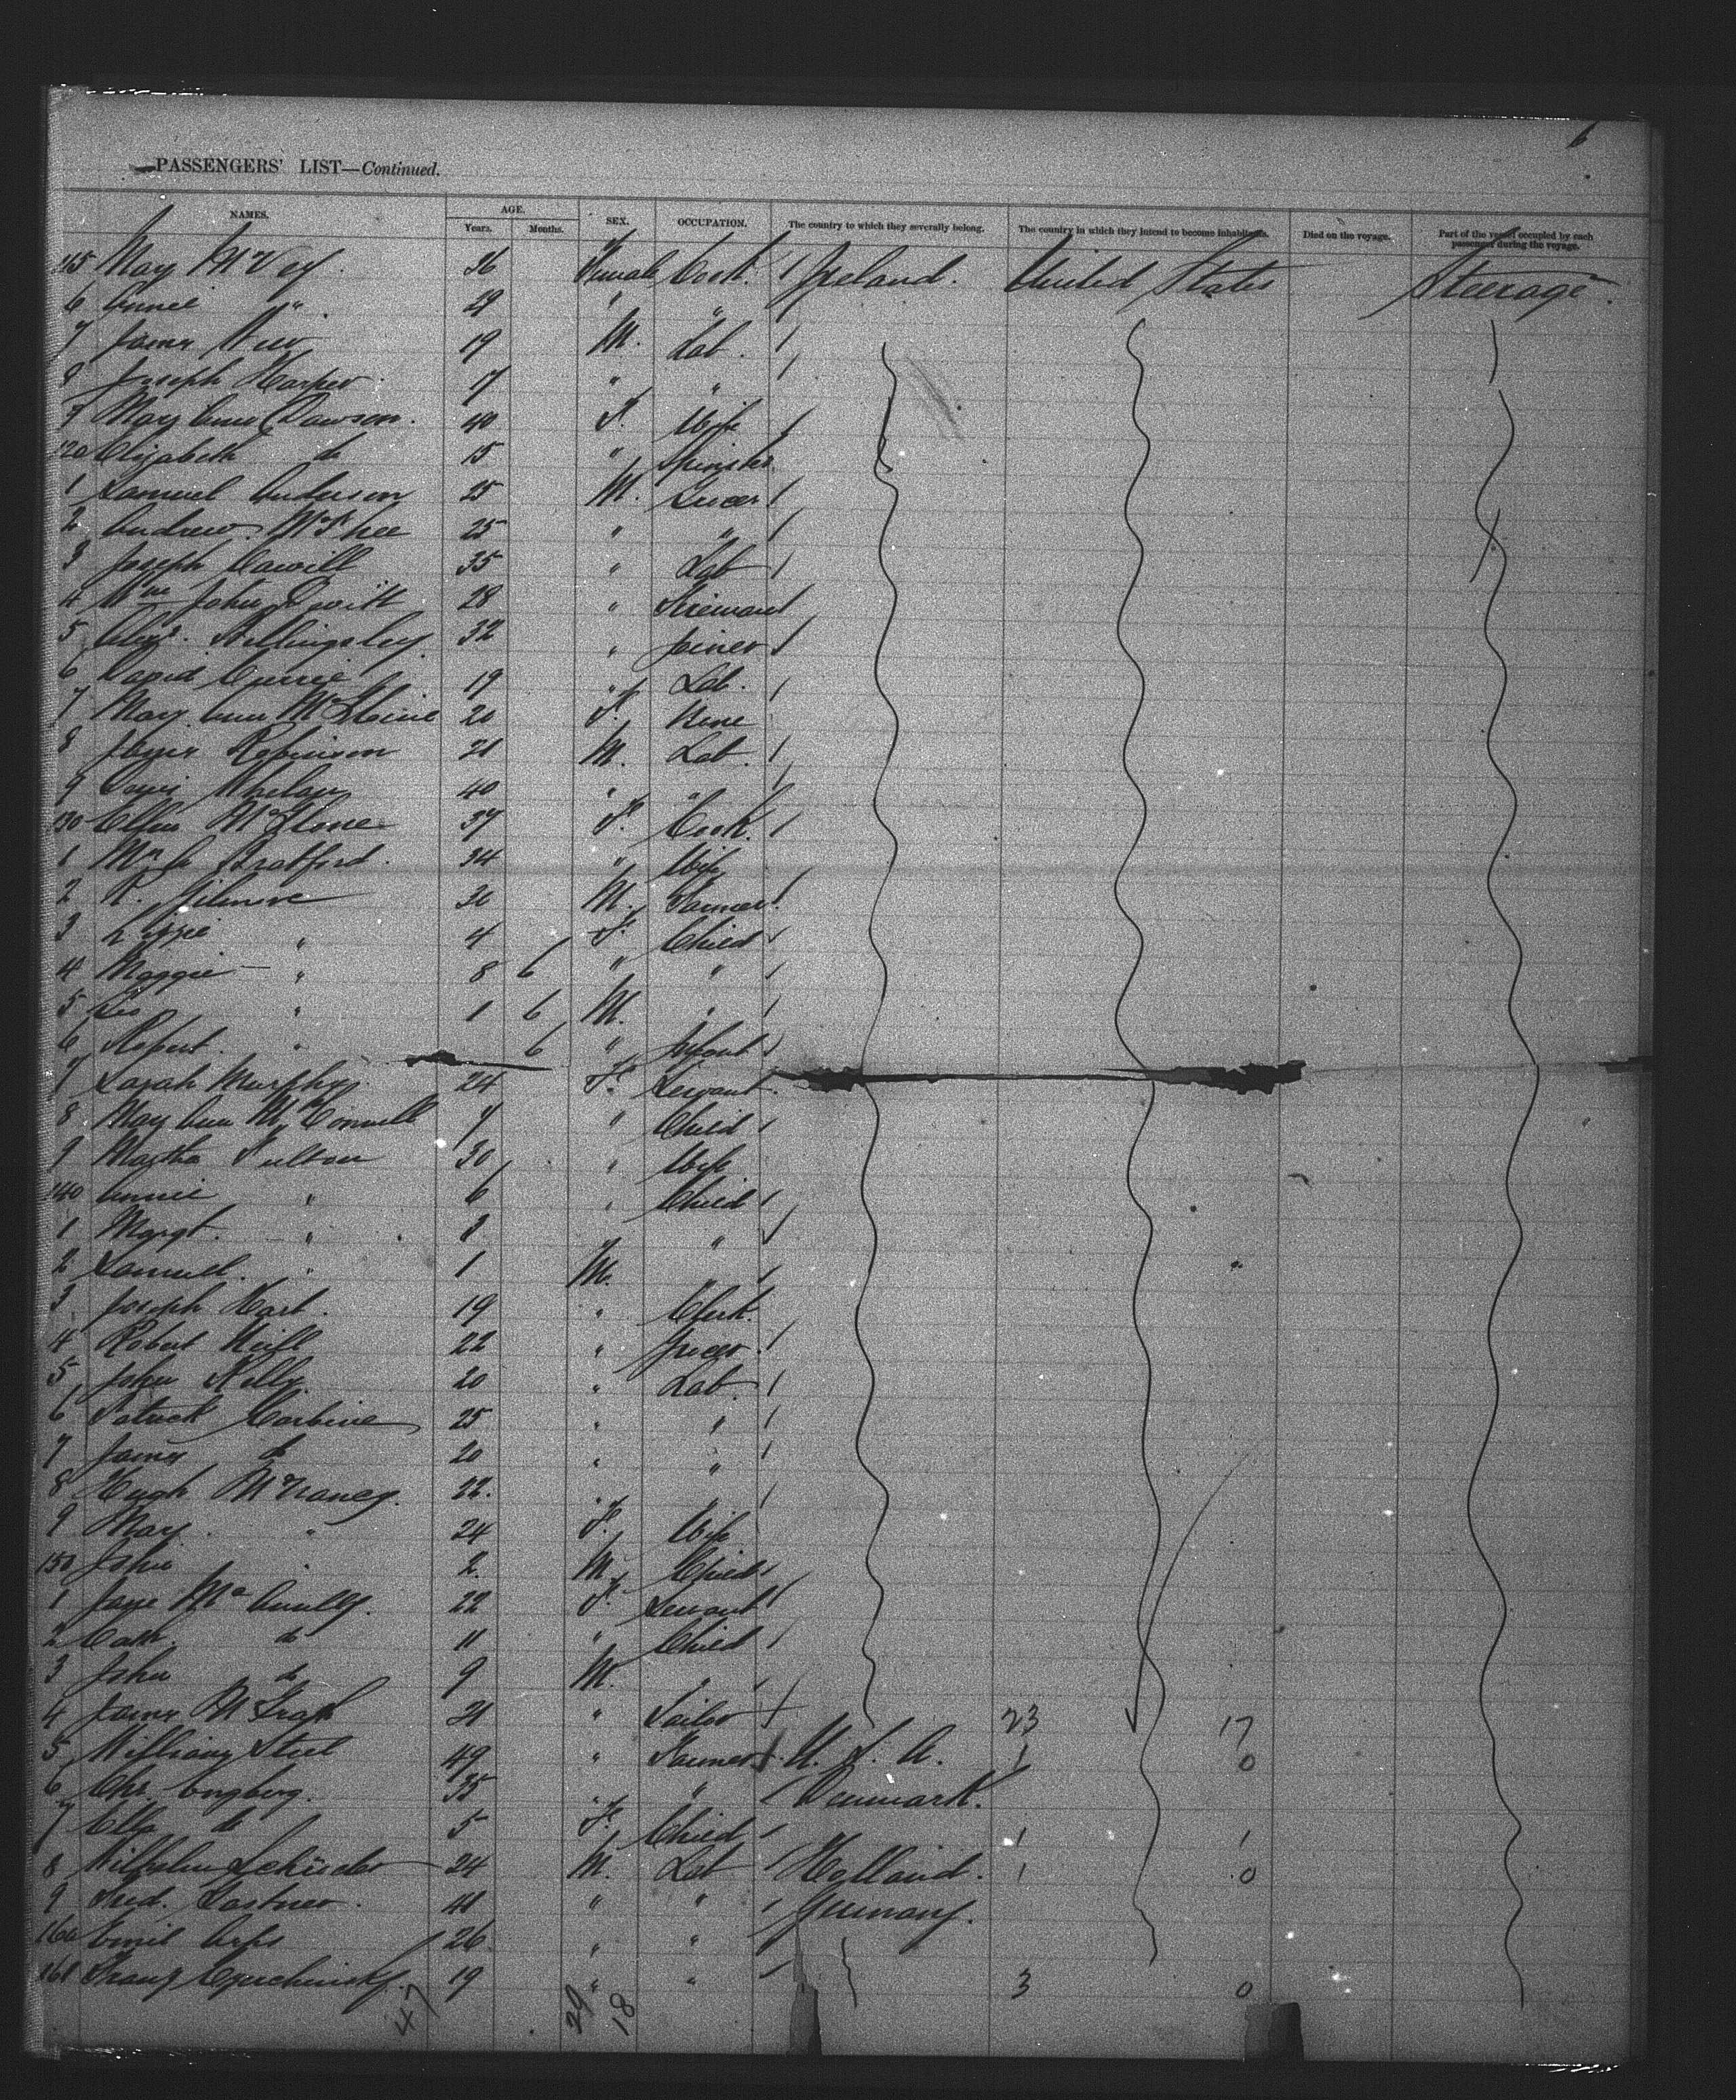 6
PASSENGERS' LIST—Continued.
NAMES. AGE. SEX. OCCUPATION. The country to which they severally belong. The country in which they intend to become inhabitants. Died on the voyage. Part of the vessel occupied by each passenger during the voyage.
Years. Months.
115 Mary McVey. 26 Female Cook. Ireland. United States Steerage.
6 Annie " 29 " "
7 James 19 M. Lab.
8 Joseph Harper 17 " "
9 Mary Ann Dawson. 40 F. Wife
120 Elizabeth do 15 " Spinster
1 Samuel Anderson 25 M. Grocer
2 Andrew McPhee 25 " "
3 Joseph 35 " Lab
4 Wm John 28 "
5 Billingsley 32 " Joiner
6 David Currie 19 " Lab.
7 Mary Ann 20 F. None
8 James Robinson 21 M. Lab.
9 Whelan 40 " "
130 Ellen 37 F. Cook.
1 Bratford. 34 " Wife
2 R. Gilmore 30 M. Farmer
3 Lizzie " 4 F. Child
4 Maggie " 8 6 " "
5 " 1 6 M. "
6 Robert. " 6 " Infant
7 Sarah Murphy. 24 F. Servant.
8 Mary Ann McConnell 7 " Child
9 Martha Fulton 30 " Wife
140 Annie " 6 " Child
1 Margt. " "
2 Samuel. " 1 M. "
3 Joseph Hart. 19 " Clerk.
4 Robert Neill 22 " Grocer.
5 John Kelly. 20 " Lab.
6 Patrick Carbine 25 " "
7 James do 20 " "
8 Hugh 22. " "
9 Mary " 24 F. Wife
150 John " 2. M. Child
1 Jane 22 F. Servant
2 Cath. do 11 " Child
3 John do 9 M. "
4 James 21 " Sailor 23 17
5 William Steel 49 " Farmer. U. S. A. 1 0
6 Chr. Engberg. 35 " " Denmark.
7 Ella do 5 F. Child 1 1
8 Wilhelm 24 M. Lab Holland. 1 0
9 Fred. Kastner. 41 " " Germany.
160 Emil Arps 26 " "
161 Franz 19 " " 3 0
47 29 18